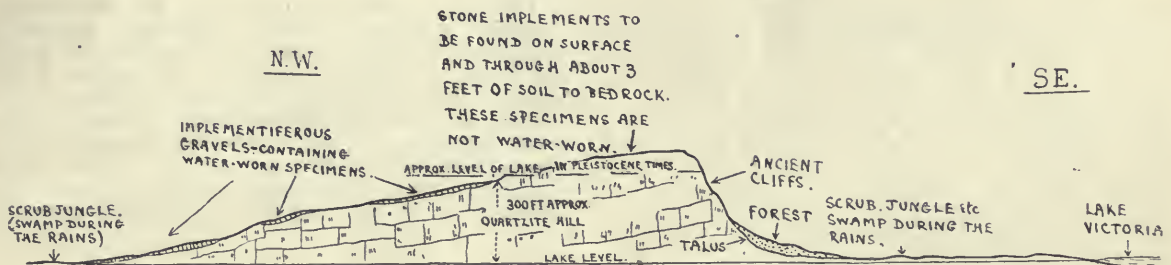 STONE IMPLEMENTS TO
BE FOUND ON SURFACE
AND THROUGH ABOUT 3
FEET OF SOIL TO BEDROCK.
THESE SPECIMENS ARE
NOT WATER-WORN.
N.W.
SE.
IMPLEMENTIFEROUS
GRAVELS-CONTAINING
WATER-WORN SPECIMENS.
APPROX. LEVEL OF LAKE IN PLEISTOCENE TIMES.
ANCIENT
CLIFFS.
SCRUB JUNGLE.
(SWAMP DURING
THE RAINS)
300 FT APPROX.
QUARTZLITE HILL
LAKE LEVEL.
TALUS
FOREST
SCRUB. JUNGLE ETC
SWAMP DURING THE
RAINS.
LAKE
VICTORIA